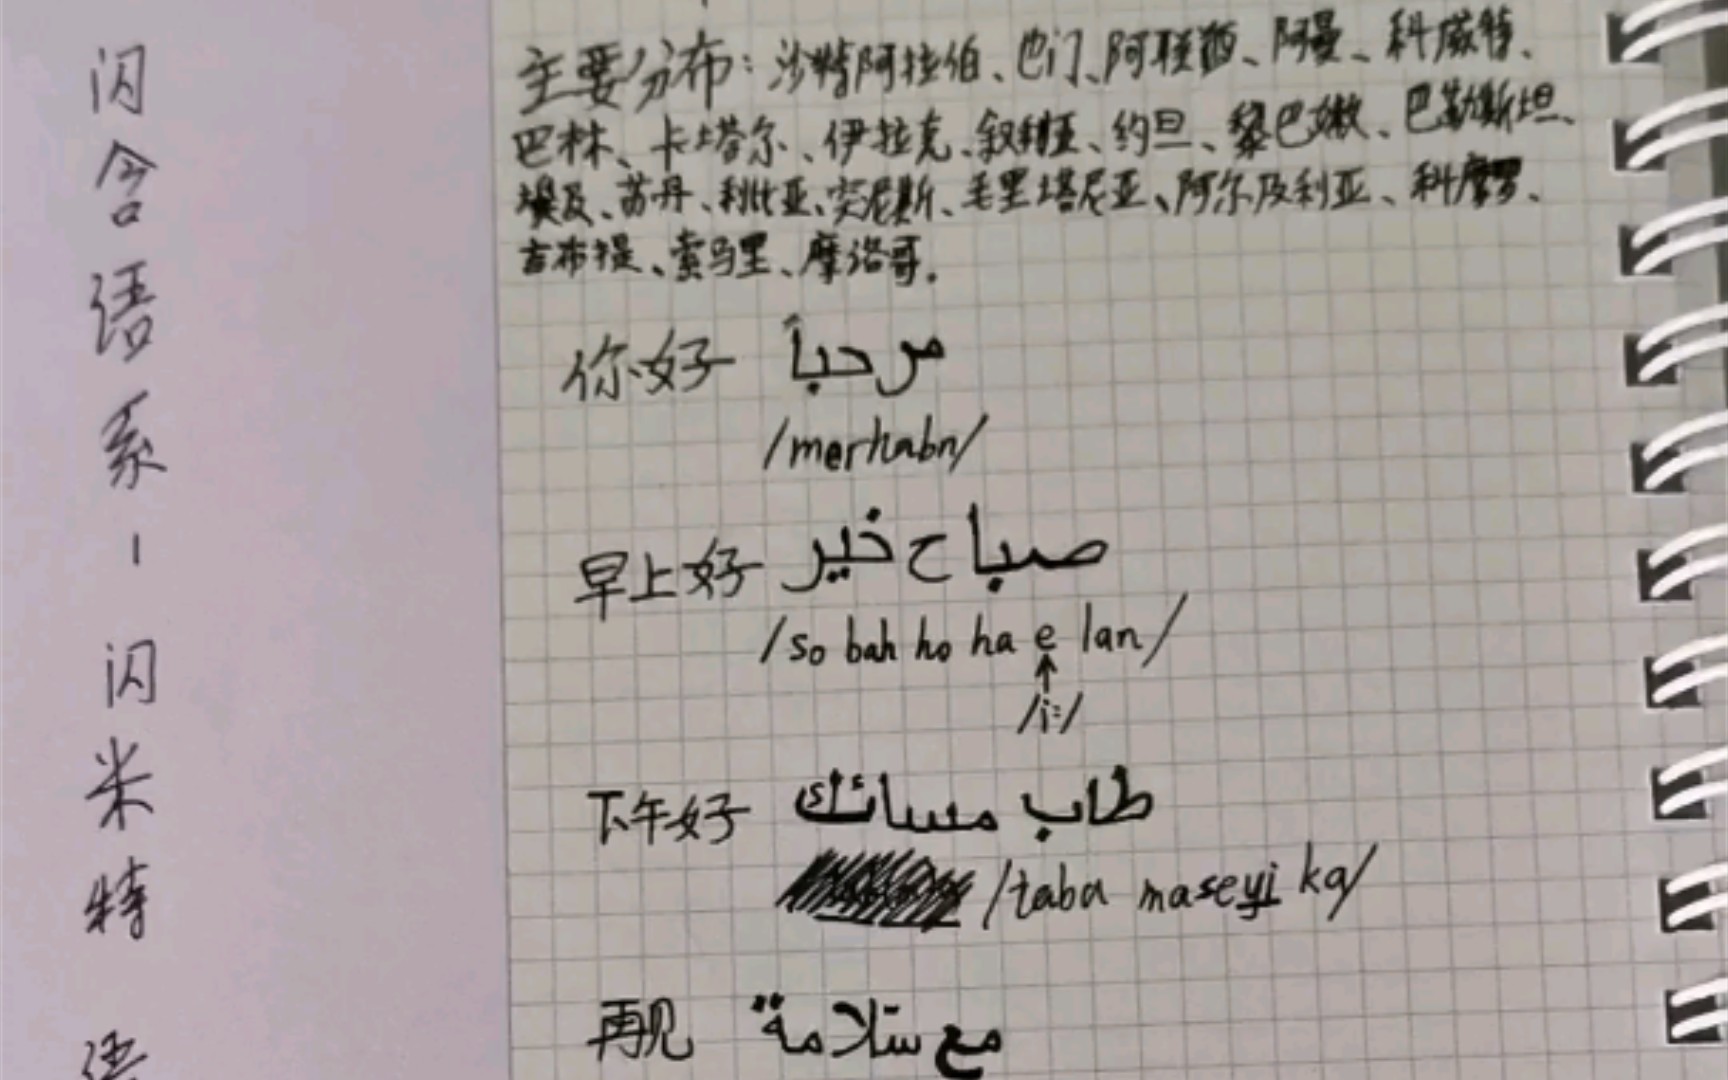 闪含语系-闪米特语
主要分布：沙特阿拉伯、巴门、阿联酋、阿曼、科威特、
巴林、卡塔尔、伊拉克、叙利亚、约旦、黎巴嫩、巴勒斯坦、
埃及、苏丹、利比亚、突尼斯、毛里塔尼亚、阿尔及利亚、科摩罗、
吉布提、索马里、摩洛哥。
你好 مرحباً
/merhabn/
早上好 صباح خير
/so bah ho ha e lan/
/i:/
下午好 طاب مسائك
/taba maseyi ka/
再见 مع سلامة